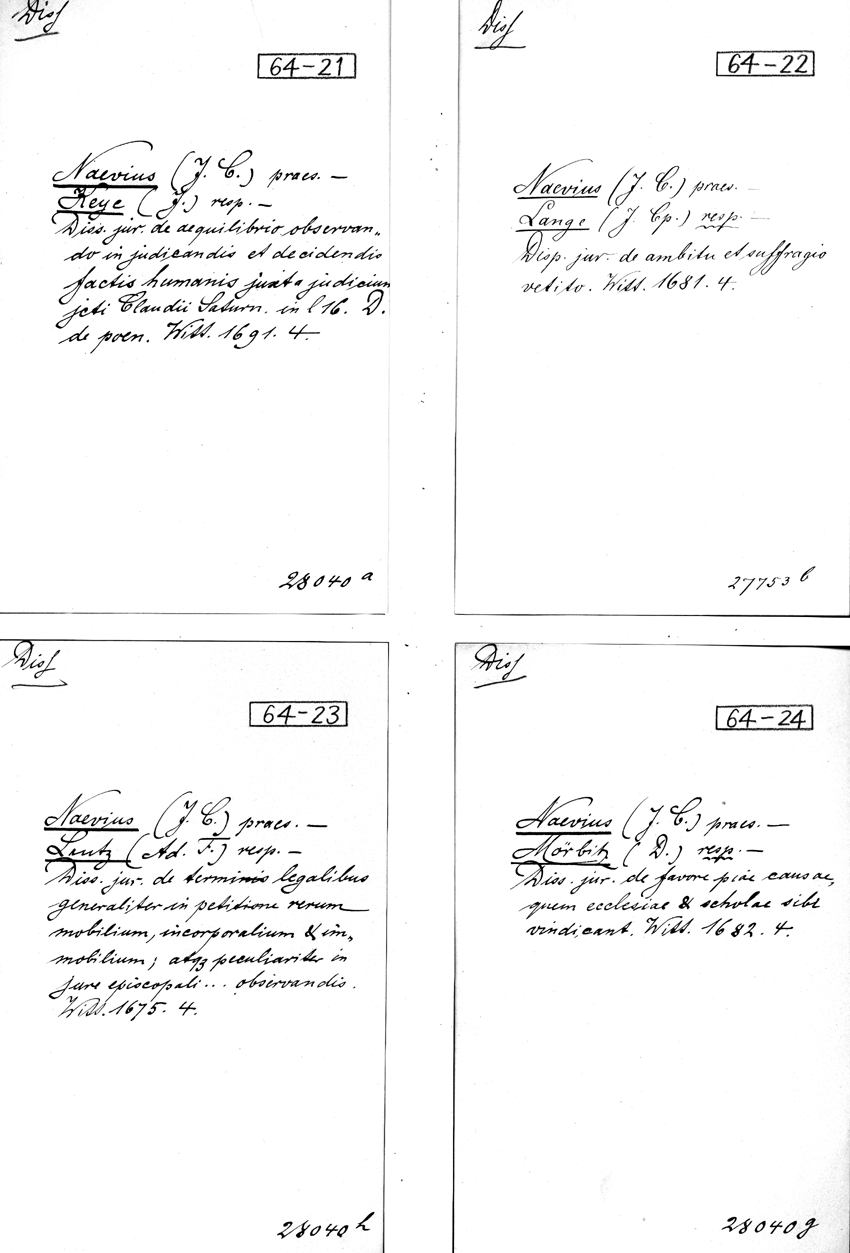 Diss
64-21
Naevius (J. C.) praes. —
Keye (J.) resp. —
Diss. jur. de aequilibrio observan„
do in judicandis et decidendis
factis humanis juxta judicium
jcti Claudii Saturn. in l 16. D.
de poen. Witt. 1691. 4.
28040 a
Diss
64-22
Naevius (J. C.) praes. —
Lange (J. Cp.) resp. —
Disp. jur. de ambitu et suffragio
vetito. Witt. 1681. 4.
27753 b
Diss
64-23
Naevius (J. C.) praes. —
Lautz (Ad. F.) resp. —
Diss. jur. de terminis legalibus
generaliter in petitione rerum
mobilium, incorporalium & im„
mobilium; atqz peculiariter in
jure episcopali... observandis.
Witt. 1675. 4.
28040 h
Diss
64-24
Naevius (J. C.) praes. —
Mörbitz (D.) resp. —
Diss. jur. de favore piae causae,
quem ecclesiae & scholae sibi
vindicant. Witt. 1682. 4.
28040 g